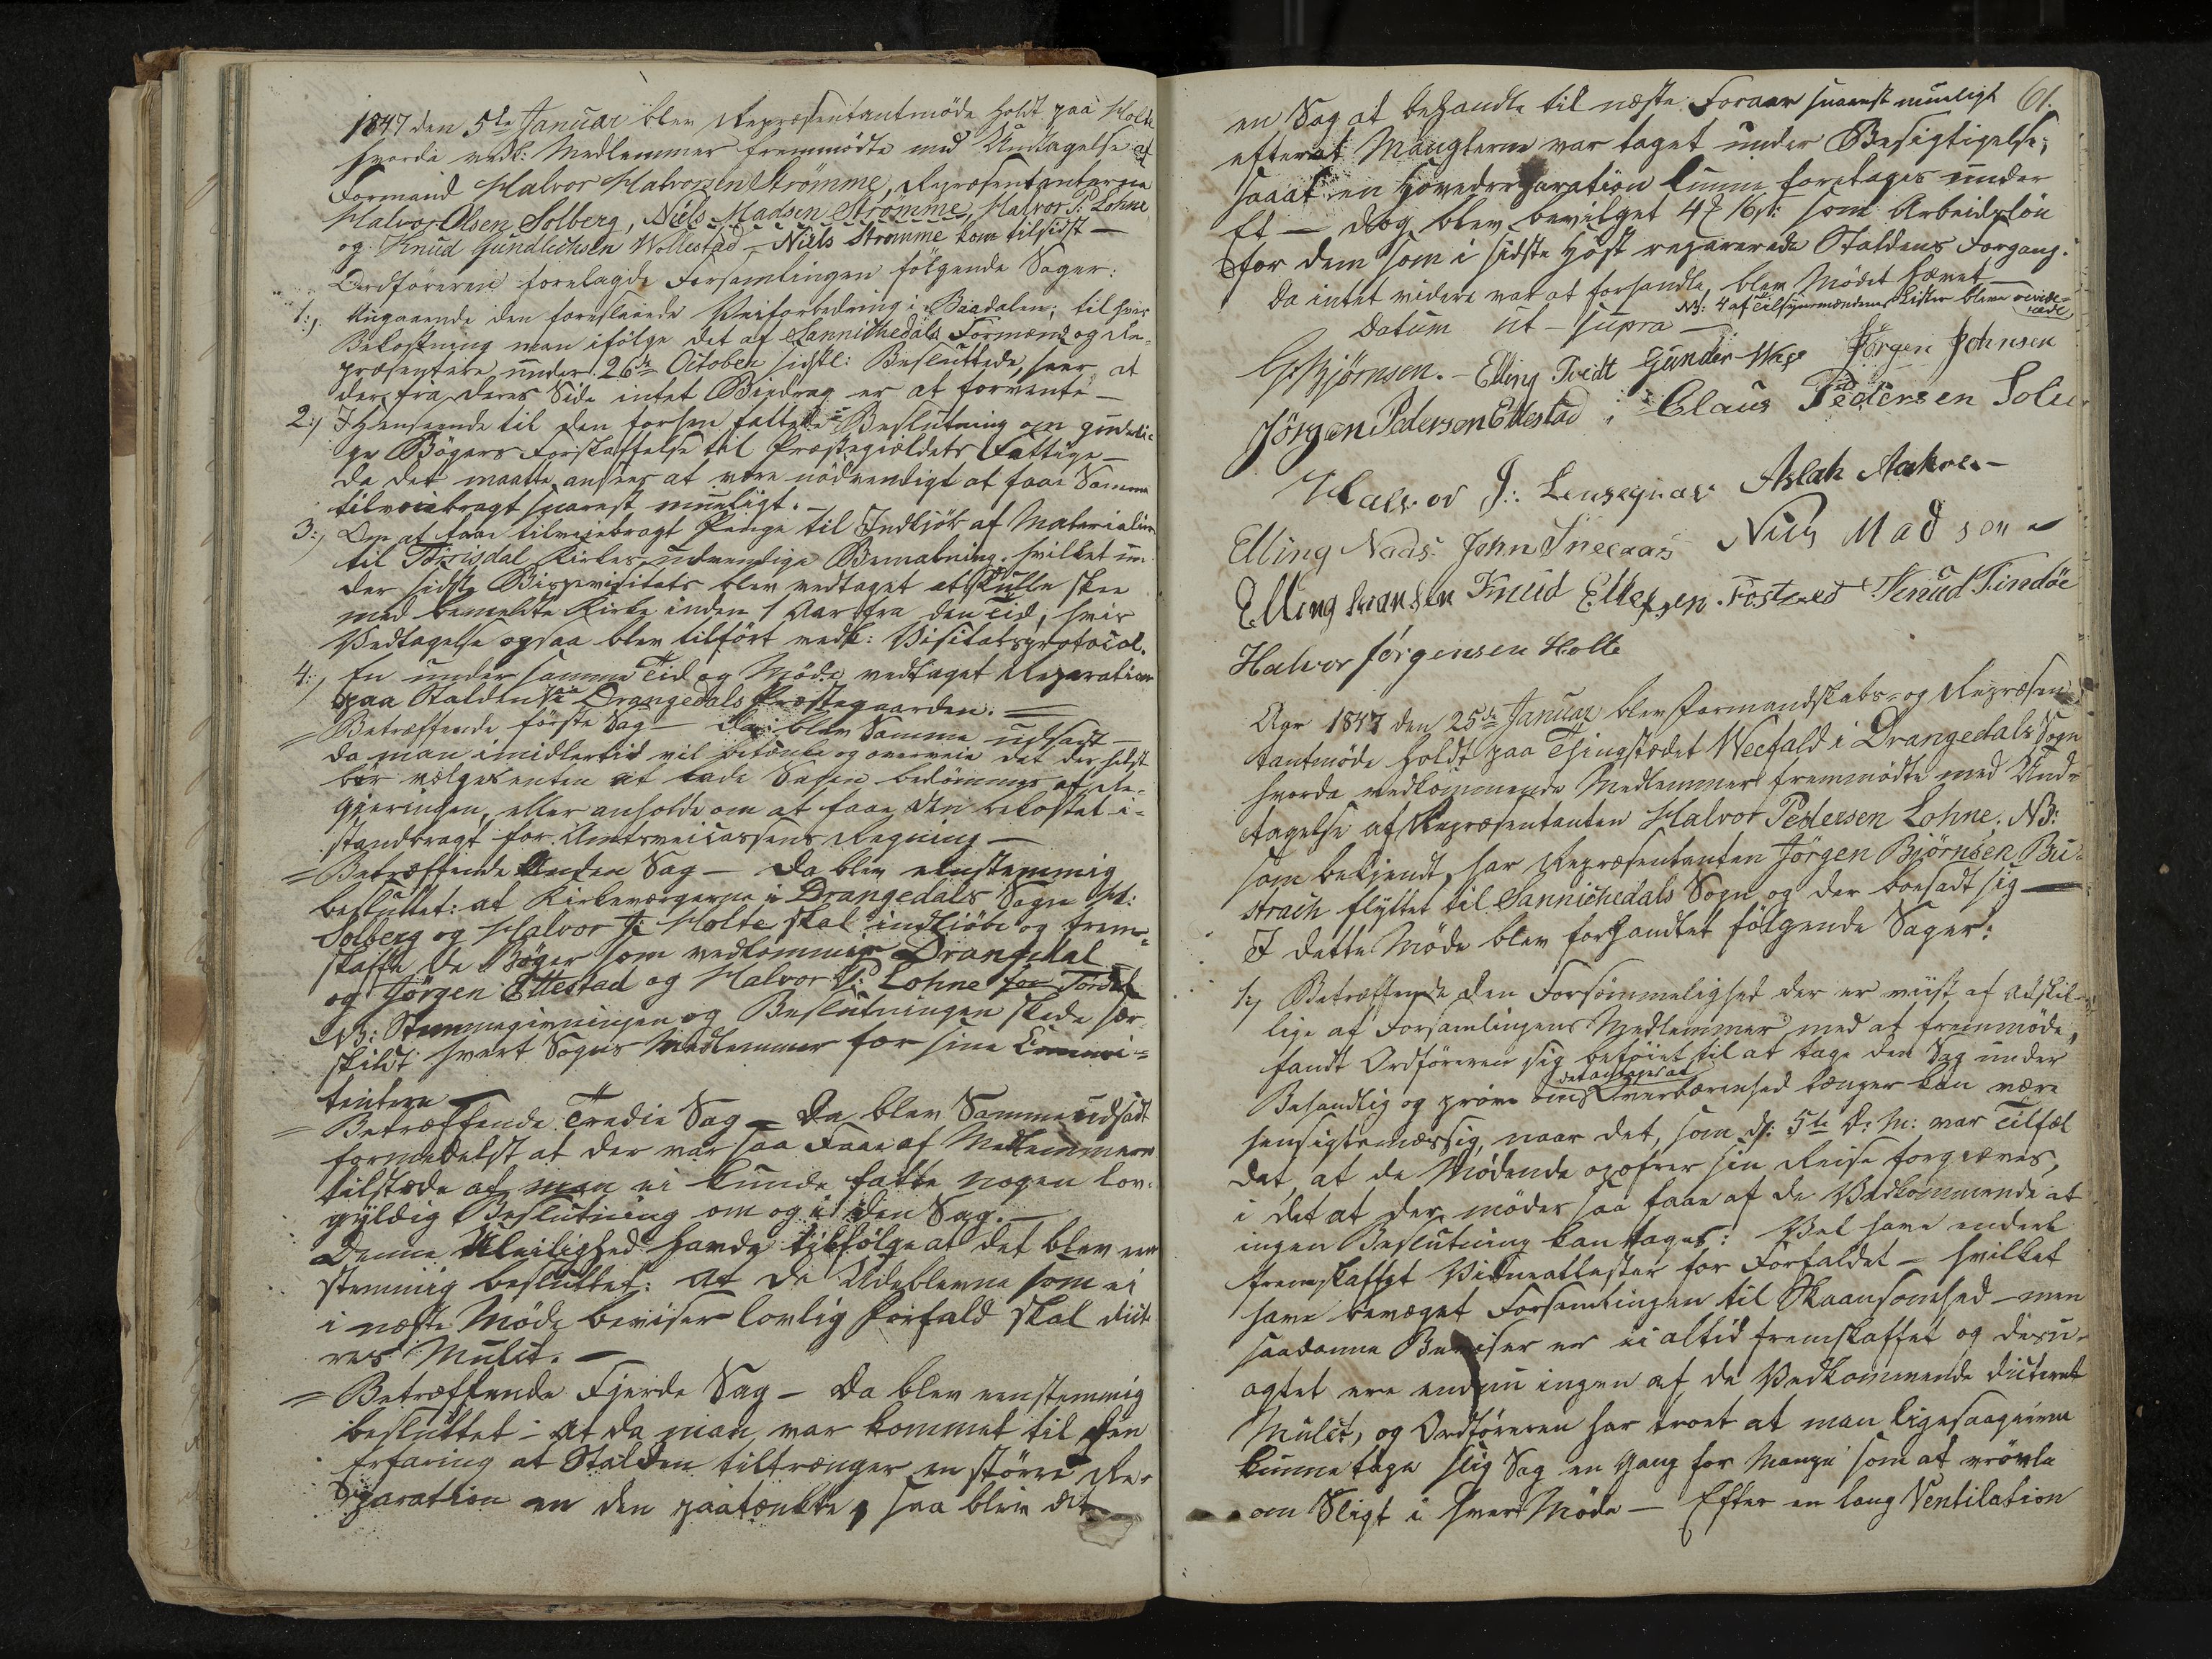 1847 den 5te Januar blev Repræsentantmöde holdt paa Holte
hvorda vedk: Medlemmer fremmödte med Undtagelse af
Formænd Halvor Halvorsen Strömme, Repræsentanterne
Halvor Olsen Solberg, Niels Madsen Strömme, Halvor P. Lohne
og Knud Gundlichsen Wollestad – Niels Strömme kom tilsidst –
Ordföreren forelagde Forsamlingen fölgende Sager:
1:, Angaaende den foreslaaede Veiforbedring i Baadalen; til hvis
Bekostning man ifölge det af Sannikedals Formænd og Re-
præsentere under 26de October sidstl: Besluttede, seer at
der fra deres Side intet Bidrag er at forvente –
2:, I Henseende til den forhen fattede Beslutning om gudeli-
ge Bögers Forskaffelse til Præstegjældets Fattige –
da det maatte ansees at være nödvendigt at faae Samme
tilveiebragt snarest mueligt. –
3:, Om at faae tilveiebragt Penge til Indkjöb af Materialier
til Törrisdal Kirkes udvendige Bemaling, hvilket un-
der sidste Bispevisitats blev vedtaget at skulle skee
med bemeldte Kirke inden 1 Aar fra den Tid, hvis
Vedtagelse ogsaa blev tilfört vedk: Visitatsprotocol.
4:, En under samme Tid og Möde vedtaget Reparation
paa Stalden paa Drangedals Præstegaarden. =
= Betræffende förste Sag – da blev Samme udsadt –
da man imidlertid vil betænke og overveie det der helst
bör vælges enten at lade Sagen bedömmes af Re-
gjeringen, eller anholde om at faae den bekostet i-
standbragt for Amtsveicassens Regning –
= Betræffende Anden Sag – da blev eenstemmig
besluttet: at Kirkeværgerne i Drangedals Sogn
Solberg og Halvor J: Holte skal indkiöbe og frem-
skaffe de Böger som vedkommer Drangedal –
og Jörgen Ettestad og Halvor P: Lohne for Tördal
NB: Stemmegivningen og Beslutningen skede sær-
skildt hvert Sogns Medlemmer for sine Commi-
tentere –
= Betræffende Tredie Sag – Da blev Samme udsadt
formedelst at der var saa Faae af Medlemmerne
tilstæde at man ei kunde fatte nogen lov-
gyldig Beslutning om og i den Sag. –
Denne Uleilighed havde tilfölge at det blev een
stemmig besluttet: At de Udeblevne som ei
i næste Möde beviser lovlig Forfald skal dicte
res Mulct. –
= Betræffende Fjerde Sag – Da blev eenstemmig
besluttet – at da man var kommet til den
Erfaring at Stalden tiltrænger en större Re-
paration en den paatænkte, saa blev det
61.
en Sag at behandle til næste Foraar snarest mueligt
efterat Manglerne var taget under Besigtigelse;
saaat en Hovedreparation kunne foretages under
Et – dog blev bevilget 4 16 som Arbeidslön
for dem som i sidste Höst reparerede Staldens Forgang.
Da intet videre var at forhandle, blev Mödet hævet –
NB: 4 af Tilsynsmændenes Lister bleve revide-
rede
Datum ut – supra –
G. Bjørnsen. – Elling Tvedt Gunder Jörgen Johnsen
Jörgen Pedersen Ettestad Claus Pedersen
Halvor J: Aslak
Elling Naas. John Niels Madsen
Elling Hansen Knud Ellefsen Fostved Knud Timdöe
Halvor Jörgensen Holte
Aar 1847 den 25de Januar blev Formandskabs- og Repræsen
tantmöde holdt paa Thingstædet Weefald i Drangedals Sogn
hvorda vedkommende Medlemmer fremmödte med Und-
tagelse af Repræsentanten Halvor Pedersen Lohne, NB:
som bekjendt, har Repræsentanten Jörgen Björnsen Bu-
strach flyttet til Sannichedals Sogn og der boesadt sig –
I dette Möde blev forhandlet fölgende Sager:
1:, Betræffende den Forsömmelighed der er viist af adskil-
lige af Forsamlingens Medlemmer med at fremmöde,
fandt Ordföreren sig beföiet til at tage den Sag under
det antages at
Behandlig og pröve om Overbærenhed længer kan være
hensigtsmæssig, naar det, som d: 5te d: M: var Tilfæl
det, at de Mödende opofrer sin Reise forgjæves,
i det at der möder saa faae af de Vedkommende at
ingen Beslutning kan tages: Vel have endeel
fremskaffet Vidneattester for Forfaldet – hvilket
have bevæget Forsamlingen til Skaansomhed – men
saadanne Beviser er ei altid fremskaffet og desu-
agtet ere endnu ingen af de Vedkommende dicteret
Mulct, og Ordföreren har troet at man ligesaagierne
kunne tage slig Sag en Gang for Mange som at vrövle
om Sligt i hvert Möde – Efter en lang Ventilation